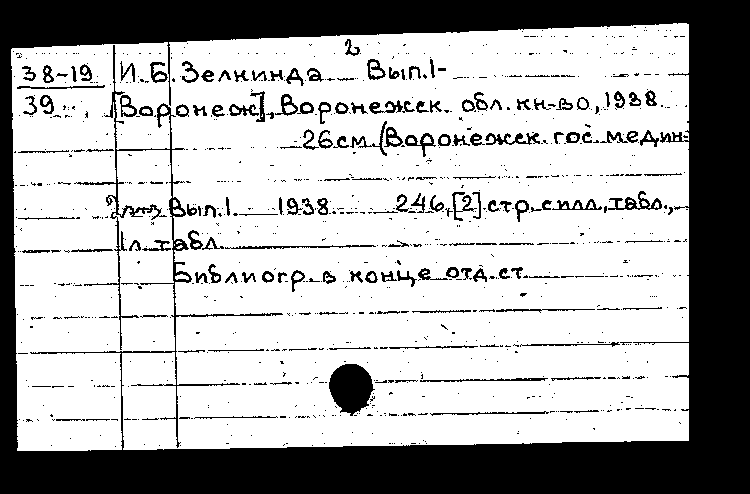 2
38-19 И. Б. Зелкинда Вып. 1-
39 [Воронеж], Воронежск. обл. кн-во, 1938.
26 см. (Воронежск. гос. медин=
Вып. 1. 1938. 246, [2] стр. с илл., табл.,
1 л. табл.
Библиогр. в конце отд. ст.